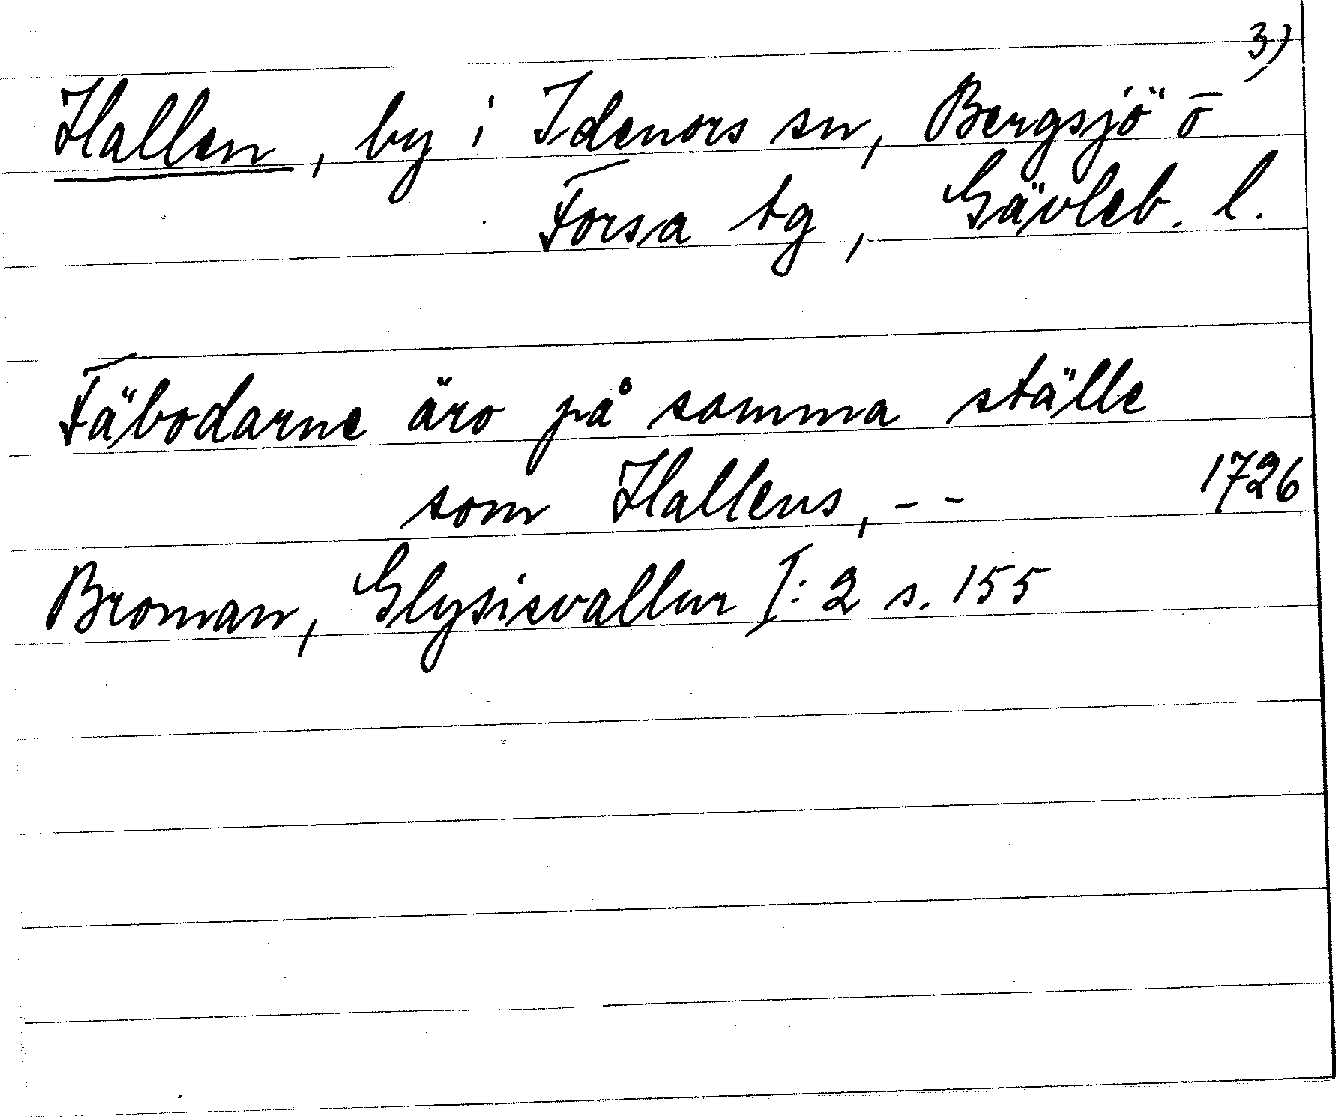 3)
Hallen, by i Idenors sn, Bergsjö o
Forsa tg, Gävleb. l.
Fäbodarne äro på somma ställe
som Hallens, - -
1726
Broman, Glysisvallur I:2 s. 155